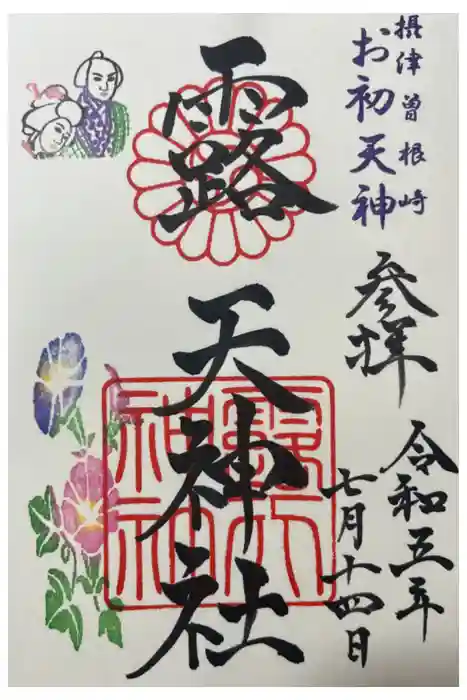 摂津曽根崎
お初天神
参拝
令和五年
七月十四日
露天神社
露天神社